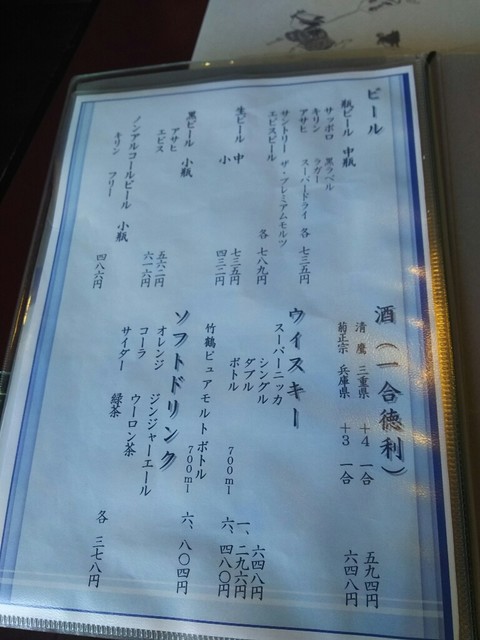 ビール
瓶ビール 中瓶
サッポロ 黒ラベル
キリン ラガー
アサヒ スーパードライ 各 七三五円
サントリー ザ・プレミアムモルツ
エビスビール 各 七八九円
生ビール 中 七三五円
小 四三二円
黒ビール 小瓶
アサヒ 五六二円
エビス 六一六円
ノンアルコールビール 小瓶
キリン フリー 四八六円
酒（一合徳利）
清鷹 三重県 +4 一合 五九四円
菊正宗 兵庫県 +3 一合 六四八円
ウイスキー
スーパーニッカ
シングル 六四八円
ダブル 一、二九六円
ボトル 700ml 六、四八〇円
竹鶴ピュアモルト ボトル
700ml 六、八〇四円
ソフトドリンク
オレンジ ジンジャーエール
コーラ ウーロン茶
サイダー 緑茶
各 三七八円